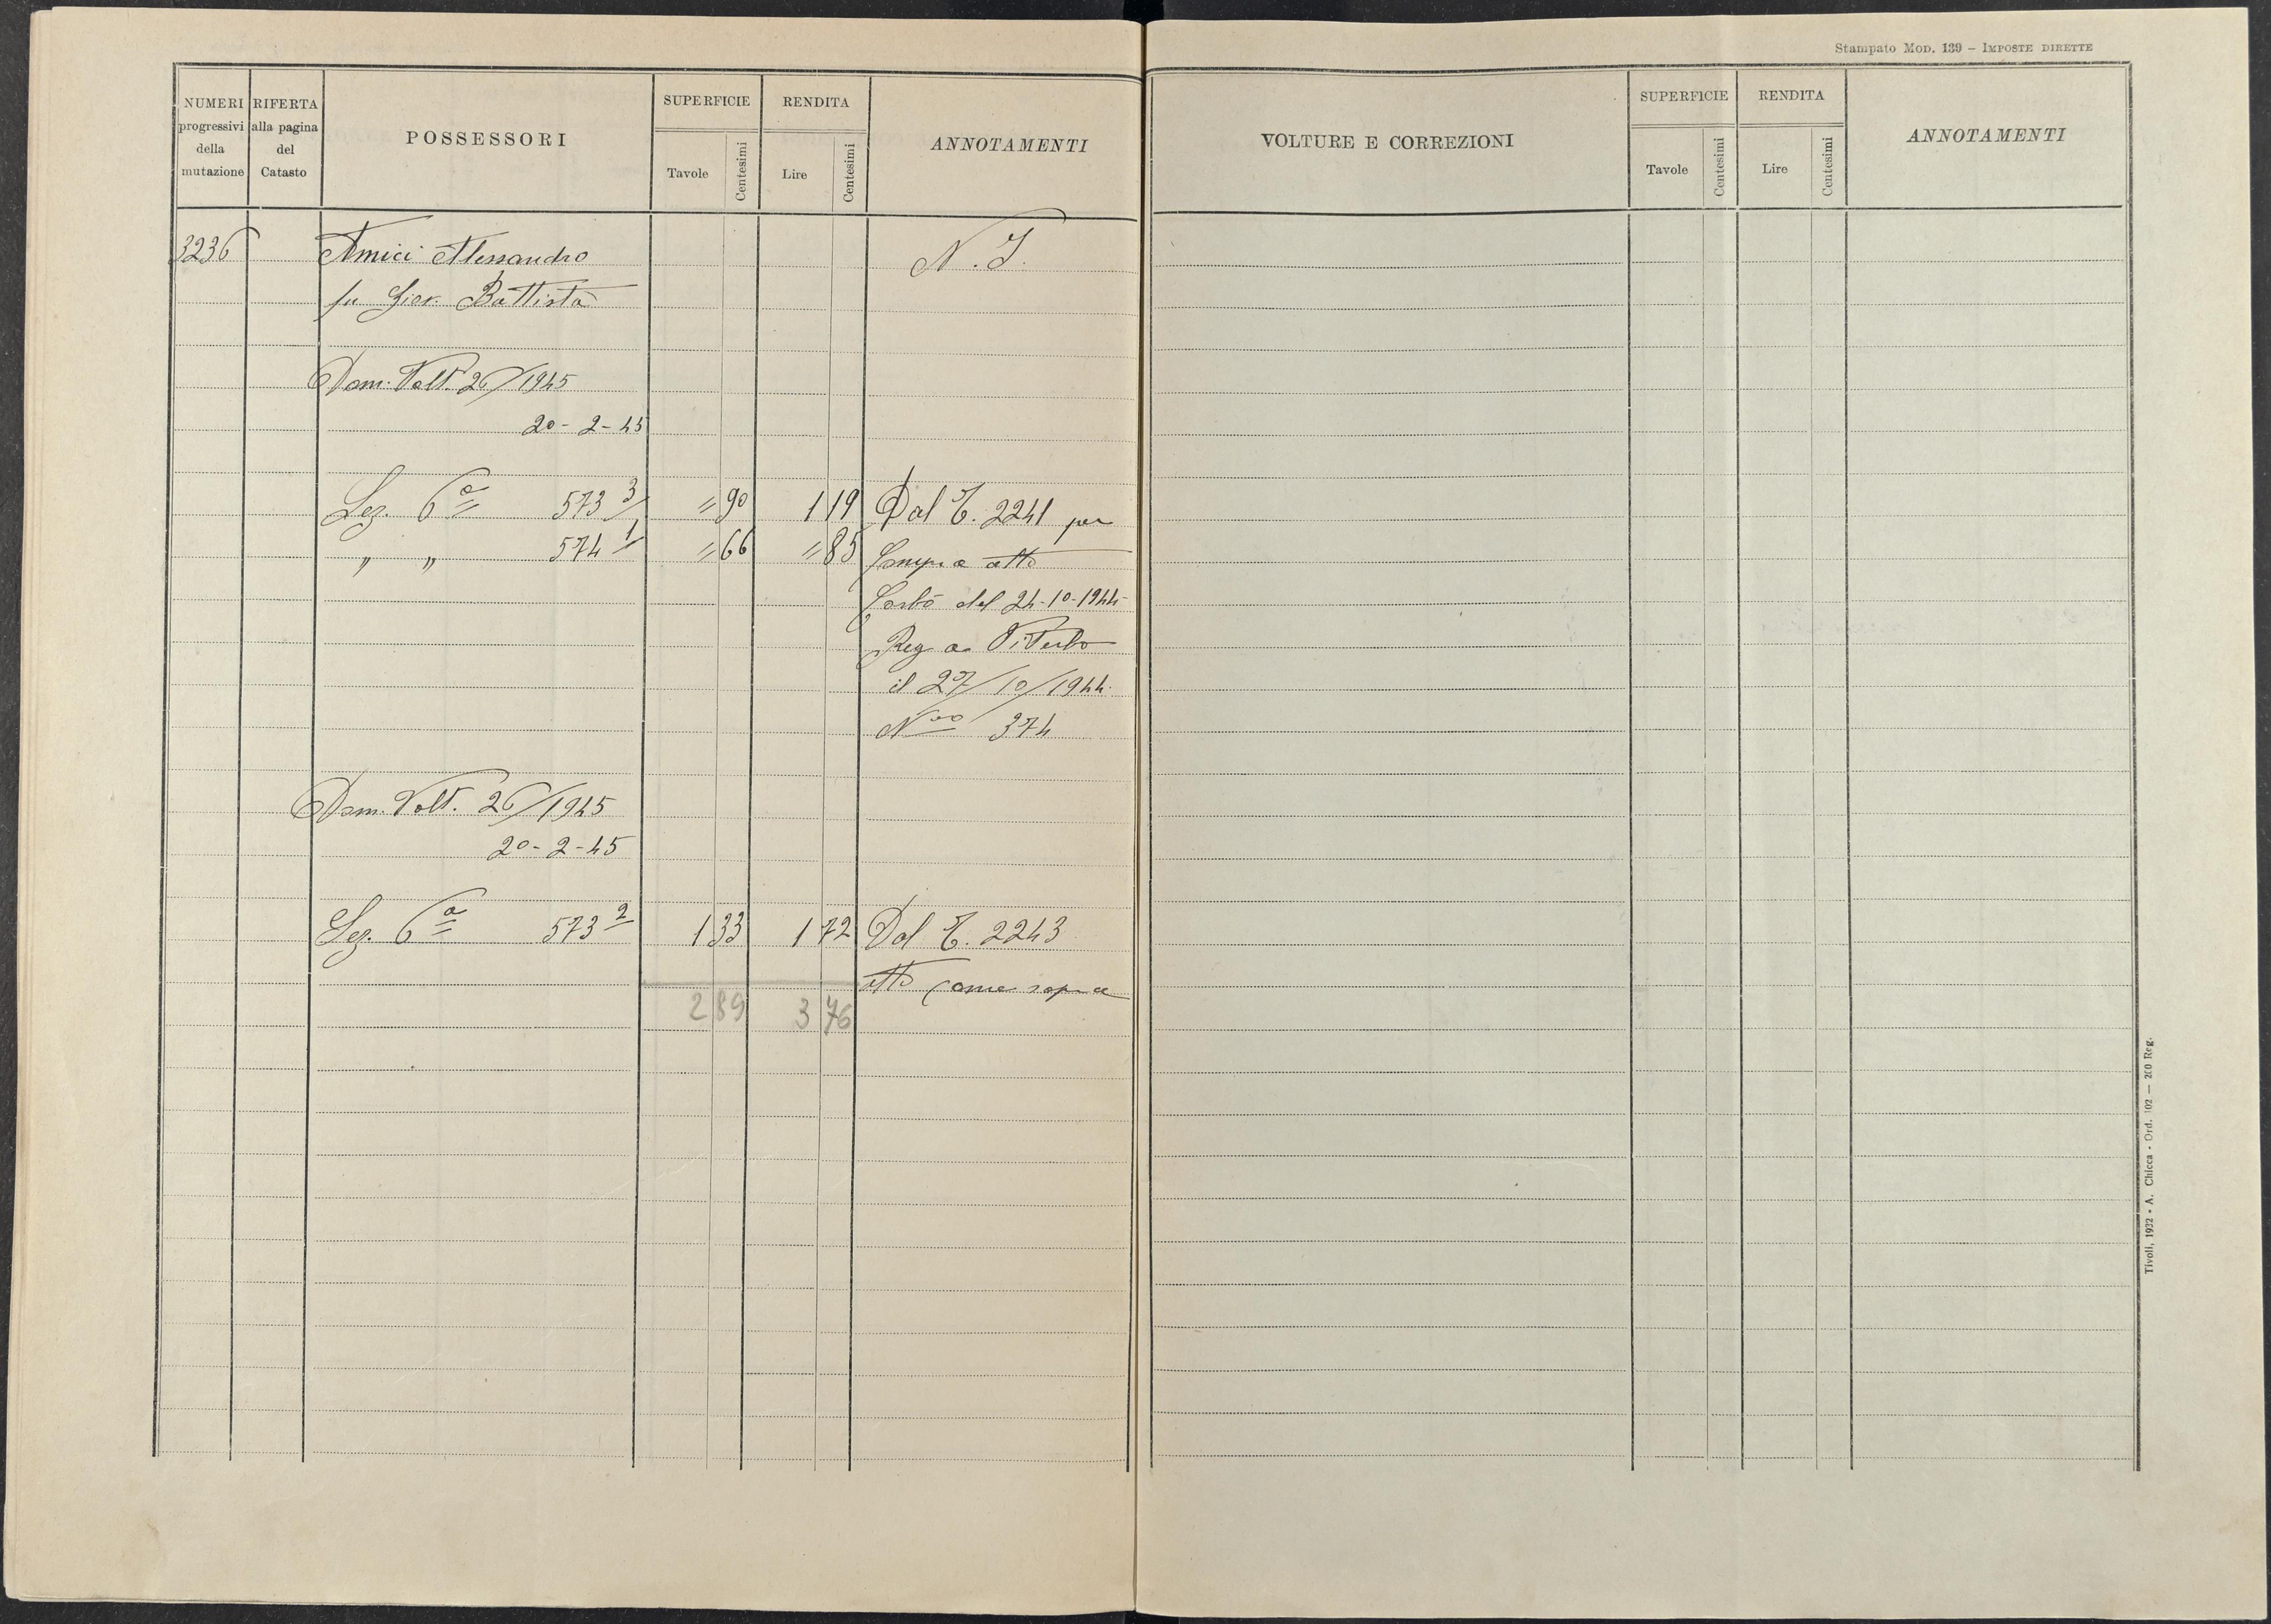 Stampato MOD. 139 – IMPOSTE DIRETTE
NUMERI progressivi della mutazione
RIFERTA alla pagina del Catasto
POSSESSORI
SUPERFICIE
Tavole Centesimi
RENDITA
Lire Centesimi
ANNOTAMENTI
VOLTURE E CORREZIONI
SUPERFICIE
Tavole Centesimi
RENDITA
Lire Centesimi
ANNOTAMENTI
3236 Amici Alessandro N. I.
fu Giov. Battista
Dom. Volt. 26/1945
20-2-45
Sez. 6ª 573 3/ = 90 1 19 Dal T. 2241 per
„ „ 574 1/ = 66 = 85 Compra atto
del 24-10-1944
Reg a Viterbo
il 27/10/1944
Nro 374
Dom. Volt. 26/1945
20-2-45
Sez. 6ª 573 2 1 33 1 72 Dal T. 2243
atto come sopra
2 89 3 76
Tivoli, 1932 - A. Chicca - Ord. 102 — 200 Reg.